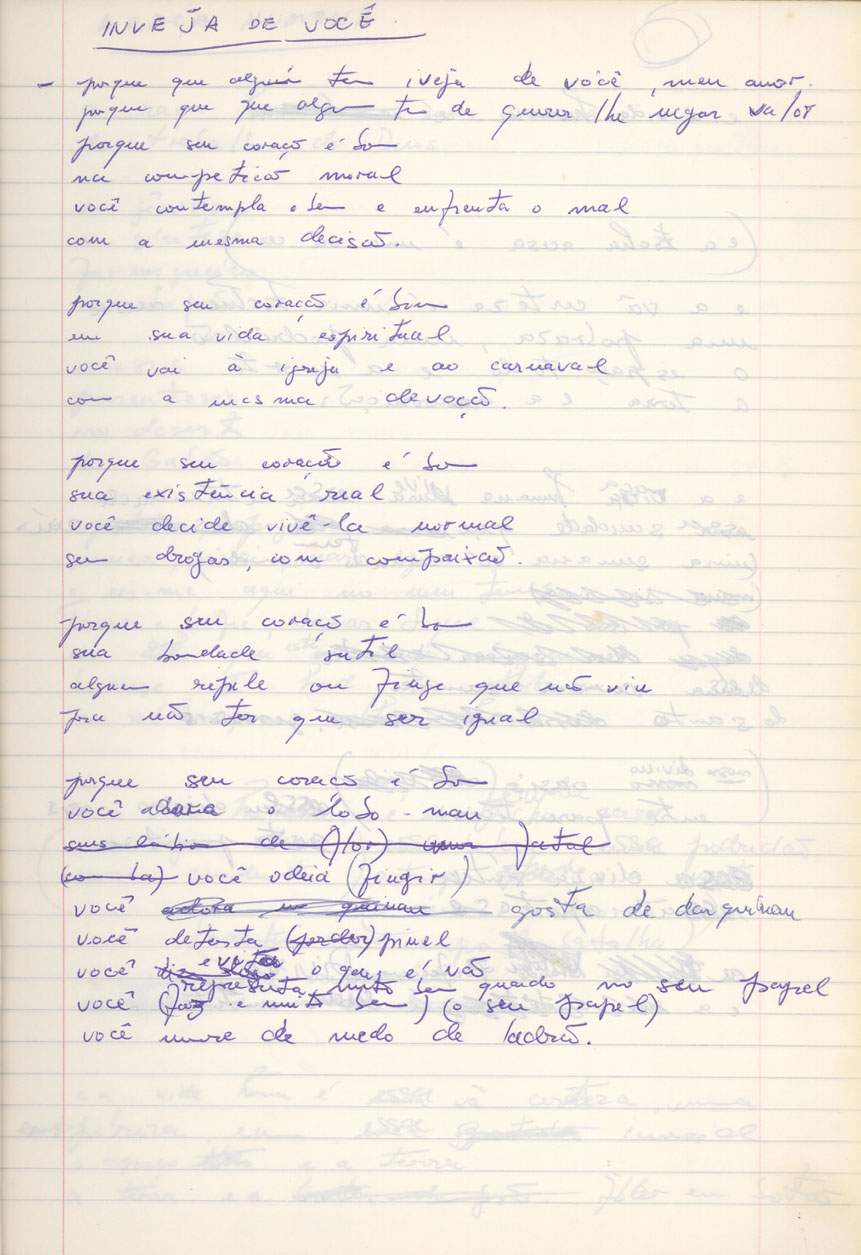 INVEJA DE VOCÊ.
- porque que alguém tem iveja de você, meu amor.
porque que que alguem tem de querer lhe negar valor
porque seu coração é bom
na competição moral
você contempla o bem e enfrenta o mal
com a mesma decisão.
porque seu coração é bom
em sua vida espiritual
você vai à igreja e ao carnaval
com a mesma devoção.
porque seu coração é bom
sua existência real
você decide vivê-la normal
sem drogas, com compaixão.
porque seu coração é bom
sua bondade sutil
alguem repele ou finge que não viu
pra não ter que ser igual
porque seu coração é bom
você adora o lobo-mau
seus de (flor) fatal
você odeia (fingir)
você adora um quinau gosta de dar quinau
você detesta (perder) pinel
você evita o que é vão
representa muito bem quando no seu papel
você (faz e muito bem) (o seu papel)
você morre de medo de ladrão.